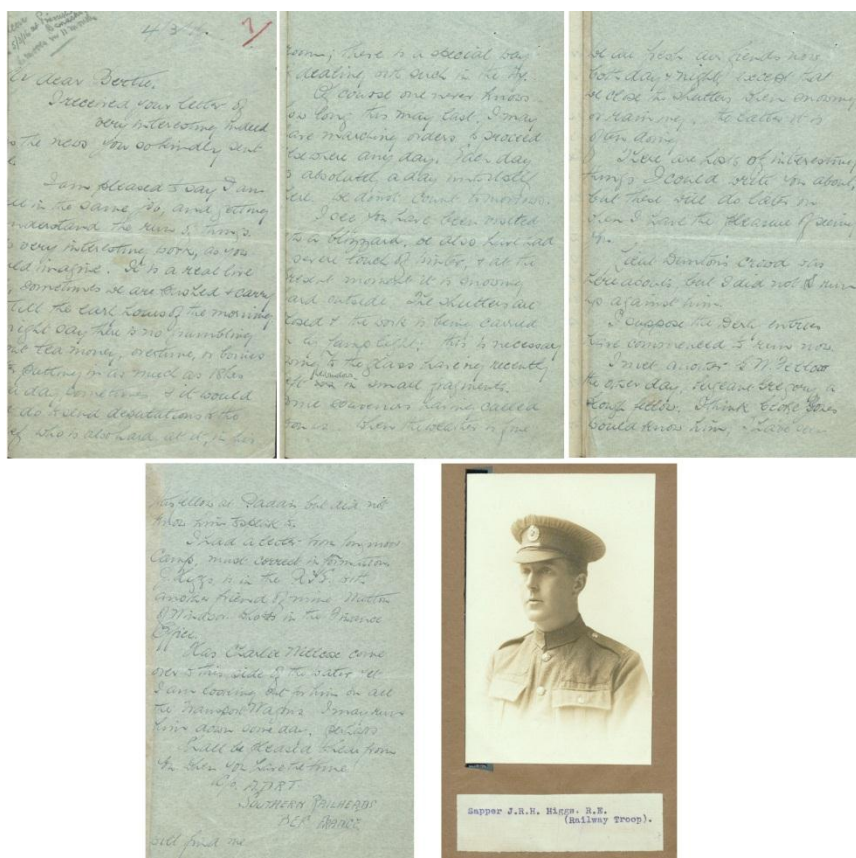 4/3/16 7
My dear Bertie,
I received your letter of
very interesting indeed
is the news you so kindly sent
I am pleased to say I am
still in the same Co, and getting
understand the run of things
very interesting work, as you
could imagine. It is a real live
sometimes we are to & carry
till the early hours of the morning
right say there is no grumbling
tea money, overtime, or bonuses
putting in as much as
day sometimes & it would
do to send deputations to the
who is also hard at it, in his
room; there is a special way
dealing with such in the
Of course one never knows
how long this may last, I may
have marching orders to proceed
elsewhere any day. Each day
is absolutely a day
here, we do not count tomorrows.
I see you have been visited
with a blizzard, we also have had
severe touch of winter, & at the
present moment it is snowing
hard outside. The shutters are
closed & the work is being carried
on by lamp light; this is necessary
owing to the glass having recently
left in small fragments.
some souvenirs having called
upon us. When the weather is fine
we are fresh air fiends now
both day & night, except that
we close the shutters when snowing
or raining, the latter it is
often doing.
There are lots of interesting
things I could write you about,
but these will do later on
when I have the pleasure of seeing
you.
Lieut Dunton's crowd was
hereabouts, but I did not run
up against him.
I suppose the Derby entries
have commenced to run now.
I met another G.W. fellow
the other day,
Slough fellow. I think
would know him, I have seen
this fellow at Paddn but did not
know him to speak to.
I had a letter from Longmoor
Camp, must correct information
J Higgs is in the R.E. with
another friend of mine Hutton
of Windsor who is in the Finance
Office.
Has Charlie come
over to this side of the water yet
I am looking out for him on all
the Transport Wagons. I may run
him down some day, perhaps
Shall be pleased to hear from
you when you have the time
c/o ADRT
Southern Railheads
BEF France
will find me
Sapper J.R.H. Higgs. R.E.
(Railway Troop).